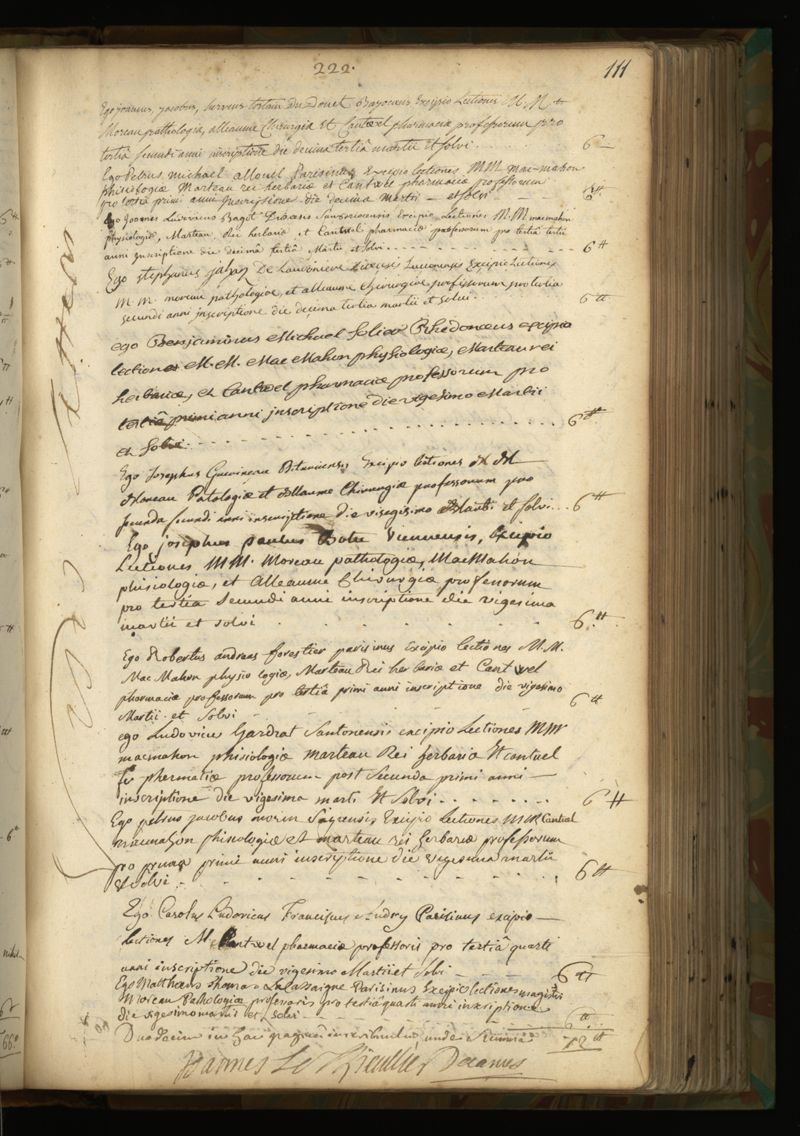 222.
111
Ego joannes, jacobus, tostain du Donet Bajocaeus Excipio Lectiones M. M.
Moreau pathologiæ, alleaume Chirurgiæ Et Cantwel pharmaciæ professorum pro
tertiâ secundi anni inscriptione die decima tertiâ martii et solvi. 6
Ego Petrus michael allouel parisinus Excipio lectiones M.M. Mac-mahon
phisiologiæ Marteau rei herbariæ et Cantwel pharmaciæ professorum
pro tertia primi anni Inscriptione die decima Martii et solvi 6 ₶
Ego joannes Ludovicus Bagot Excipio Lectiones M.M. macmahon
physiologiæ, Marteau, rei herbariæ et Cantwel pharmaciæ professorum pro tertiâ
anni Inscriptione die decimâ tertiâ Martii et solvi 6 ₶
Ego stephanus De Laudiniere Excipio Lectiones
M. M. moreau pathologiæ, et alleaume chirurgiæ professorum pro tertia
secundi anni inscriptione die decima tertia martii et solvi. 6 ₶
ego Benjaminus Michael Solier Rhedonæus excipio
lectiones M. M. Mac Mahon physiologiæ, Marteau rei
herbariæ, et Cantwel pharmaciæ professorum pro
tertiâ primi anni jnscriptione die vigesimo Martii
et solvi. 6 ₶
Ego Josephus Guerineau Excipio lectiones M M
Moreau Patologiæ et Alleaume Chirurgiæ professorum pro
secunda secundi anni inscriptione die Martii et solvi 6 ₶
Ego josephus paulus Viennensis, Excipio
Lectiones MM. Moreau pathologiæ, MacMahon
phisiologiæ, et Alleaume Chirurgiæ professorum
pro tertia secundi anni inscriptione die vigesima
martii et solvi 6 ₶
Ego Robertus andreas forestier parisinus Excipio lectiones M.M.
Mac Mahon physiologiæ, Marteau Rei herbariæ et Cantwel
pharmaciæ professorum pro tertiâ primi anni inscriptione die vigesimo
Martii et Solvi 6 ₶
ego Ludovicus Gardrat Santonensis excipio Lectiones MM
macmahon phisiologiæ marteau Rei herbariæ Et cantuel
pharmatiæ professorum post secunda primi anni
inscriptione die vigesima marti Et Solvi 6 ₶
Ego petrus jacobus morin Excipio lectiones MM. Cantuel
macmahon phisiologiæ et marteau rei herbariæ professorum
pro primi anni inscriptione die vigesima martii
et solvi 6 ₶
Ego Carolus Ludovicus Franciscus Andry Parisinus excipio
Lectiones M. Cantwel pharmaciæ professoris pro tertiâ quarti
anni inscriptione die vigesimo Martii et solvi 6 ₶
Ego Matthæus Thomas Lalassaigne Parisinus Excipio lectiones magistri
Moreau Pathologiæ professoris pro tertiâ quarti anni inscriptione
die vigesimo martii et solvi 6 ₶
Duodecim in hac pagina inscribuntur, unde summa 72 ₶
Joannes Le Thieullier Decanus